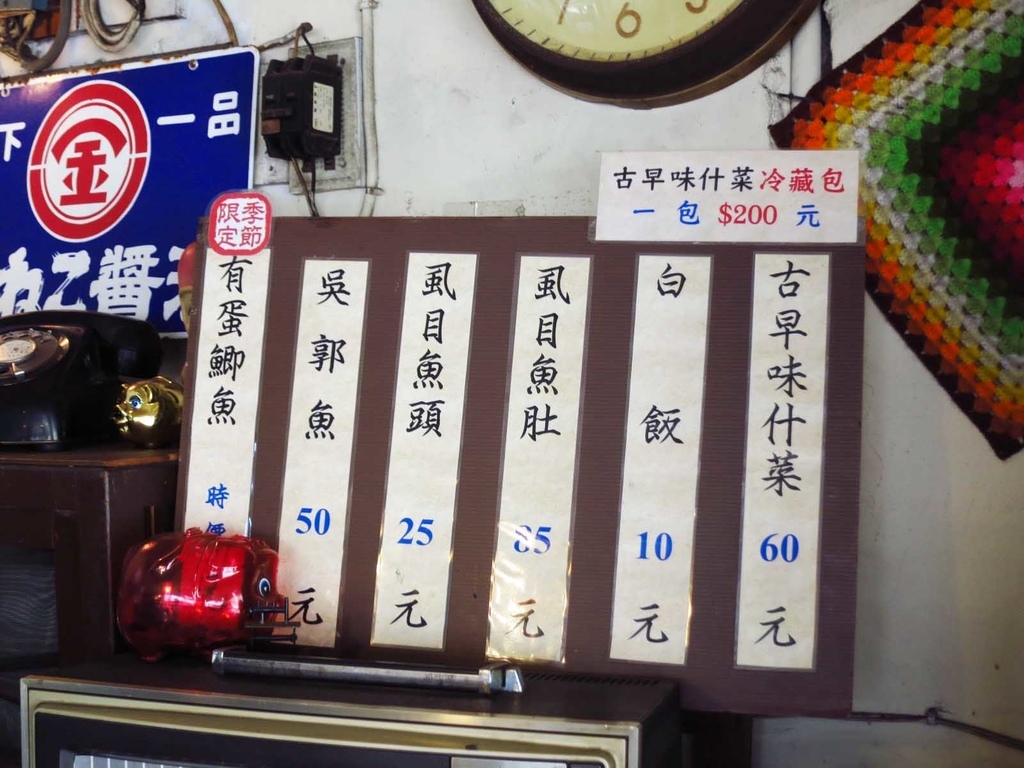 下
一品
金
醬
6
古早味什菜冷藏包
一包 $200 元
古早味什菜 60 元
白飯 10 元
虱目魚肚 85 元
虱目魚頭 25 元
吳郭魚 50 元
季節限定
有蛋鯽魚 時價